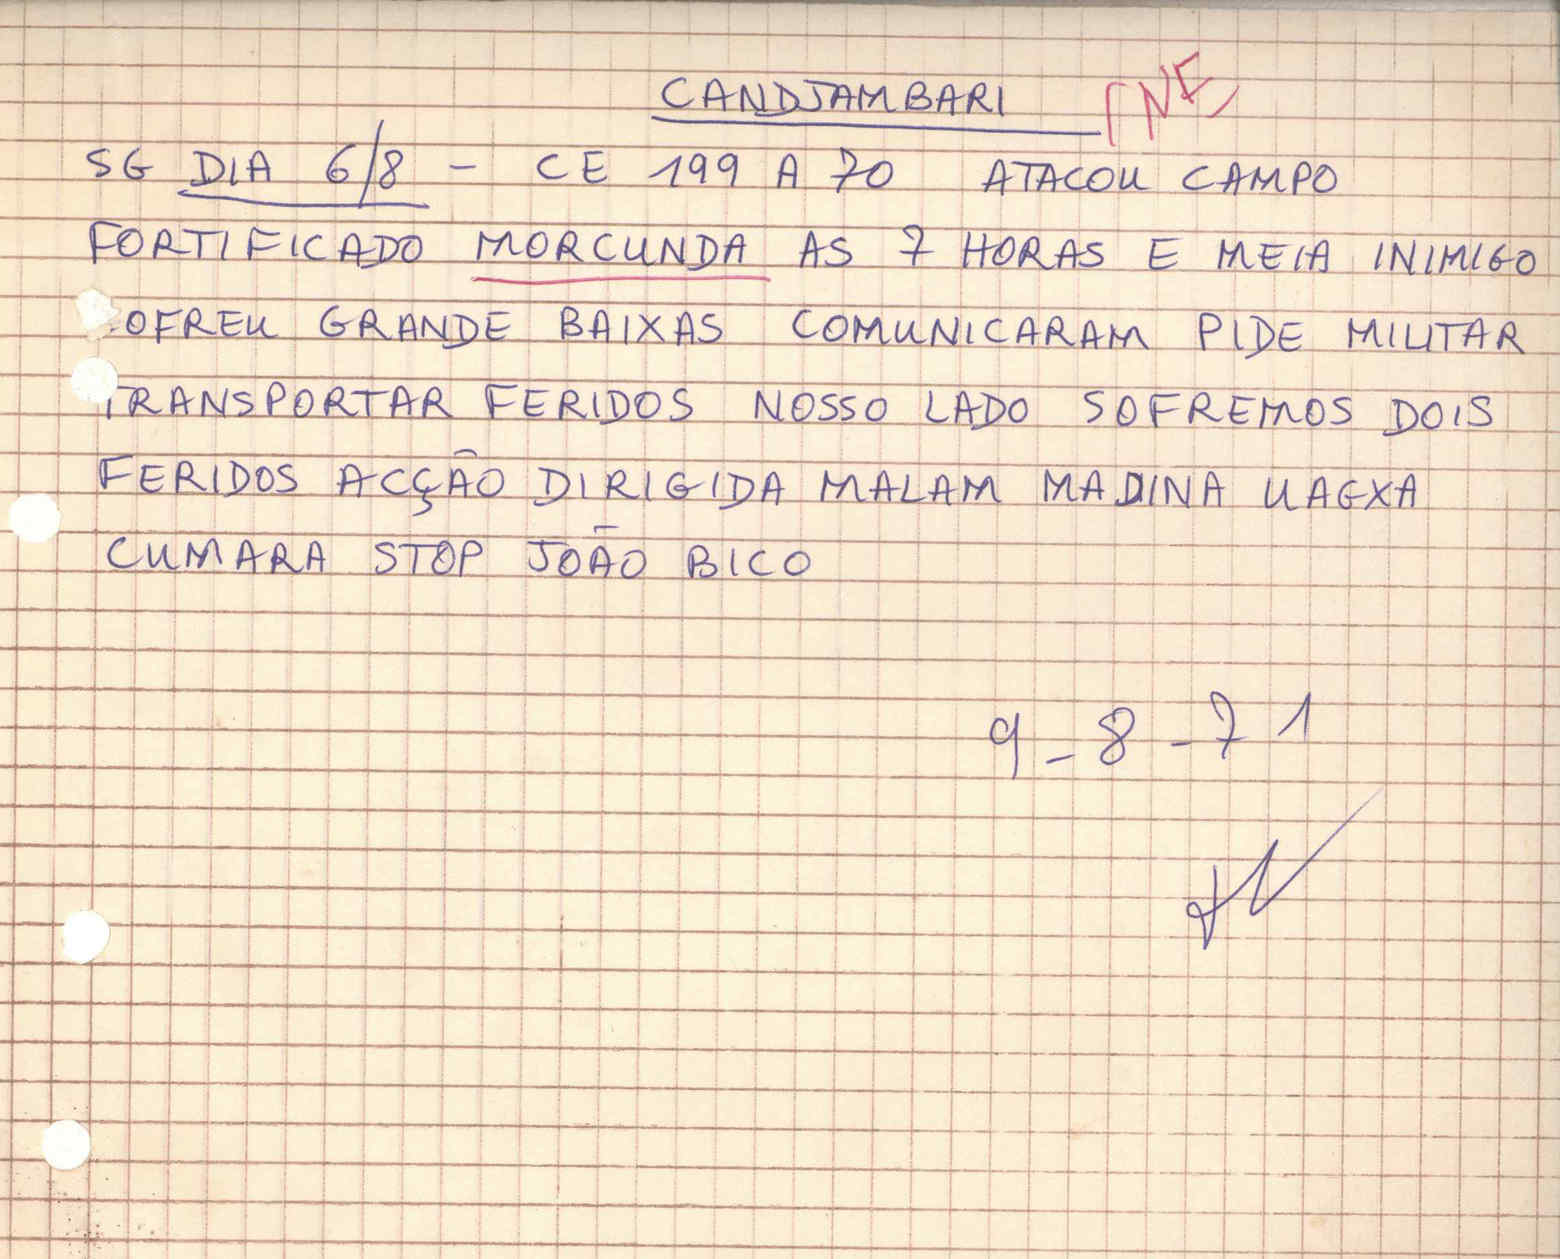 CANDJAMBARI FNE
SG DIA 6/8 - CE 199 A 70 ATACOU CAMPO
FORTIFICADO MORCUNDA AS 7 HORAS E MEIA INIMIGO
SOFREU GRANDE BAIXAS COMUNICARAM PIDE MILITAR
TRANSPORTAR FERIDOS NOSSO LADO SOFREMOS DOIS
FERIDOS ACÇÃO DIRIGIDA MALAM MADINA UAGXA
CUMARA STOP JOÃO BICO
9-8-71